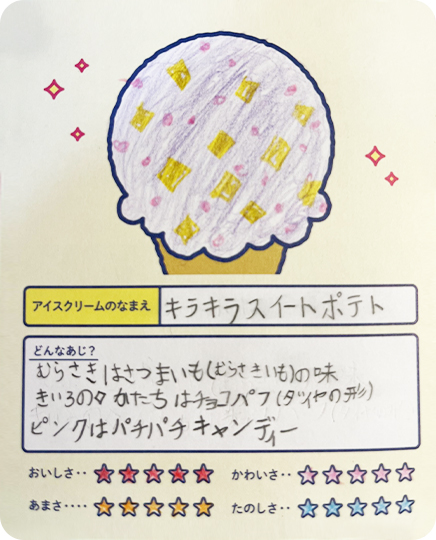 アイスクリームのなまえ キラキラスイートポテト
どんなあじ?
むらさきはさつまいも(むらさきいも)の味
きいろの◇かたちはチョコパフ(ダイヤの形)
ピンクはパチパチキャンディー
おいしさ‥ ★★★★★ かわいさ‥ ★★★★★
あまさ‥‥ ★★★★★ たのしさ‥ ★★★★★